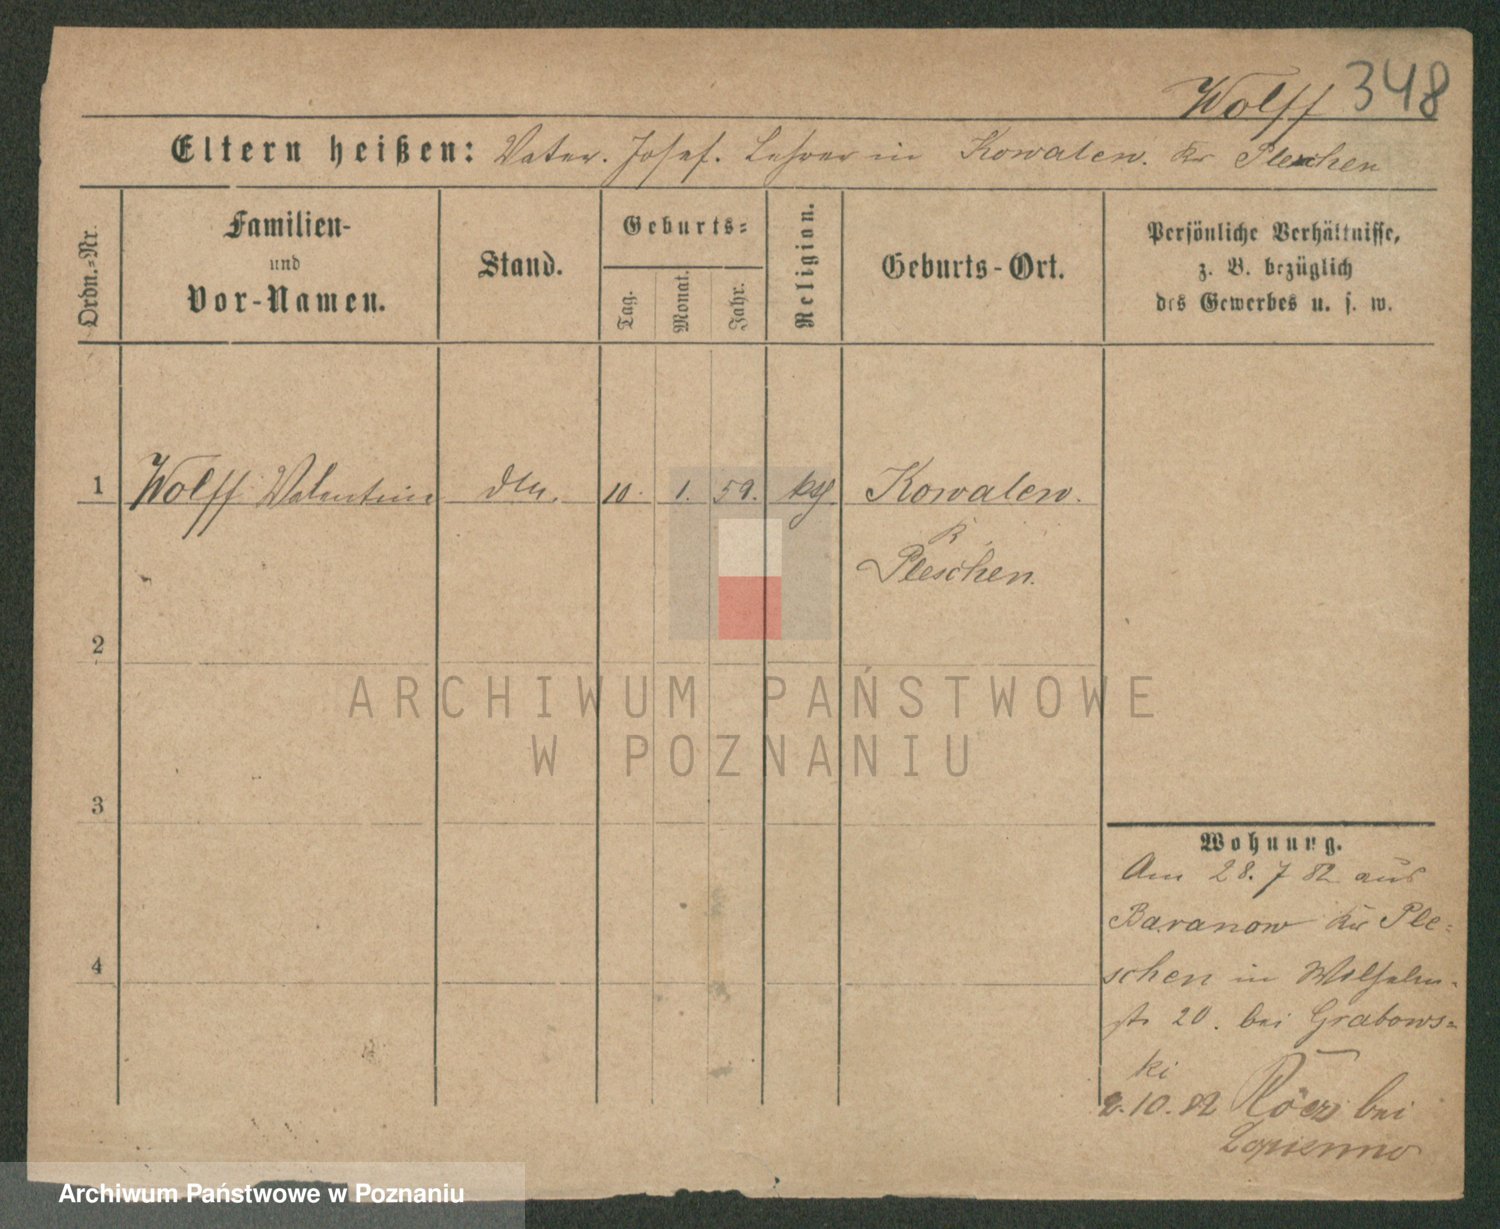 Wolff 348
Eltern heißen: Vater. Josef. Lehrer in Kowalew. Kr Pleschen
Ordn.=Nr.
Familien-
und
Vor-Namen.
Stand.
Geburts=
Tag.
Monat.
Jahr.
Religion.
Geburts-Ort.
Persönliche Verhältnisse,
z. B. bezüglich
des Gewerbes u. s. w.
1 Wolff Valentin 10. 1. 59. Kowalew.
Pleschen.
2
3
4
Wohnung.
Am 28. 7 82 aus
Baranow Kr Ple=
schen in Wilhelm-
str 20. bei Grabows=
ki
2.10.82 bei
Lopienno
ARCHIWUM PAŃSTWOWE
W POZNANIU
Archiwum Państwowe w Poznaniu